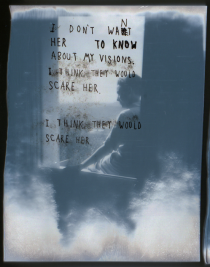 I DON'T WANT
HER TO KNOW
ABOUT MY VISIONS.
I THINK THEY WOULD
SCARE HER.
I THINK THEY WOULD
SCARE HER.